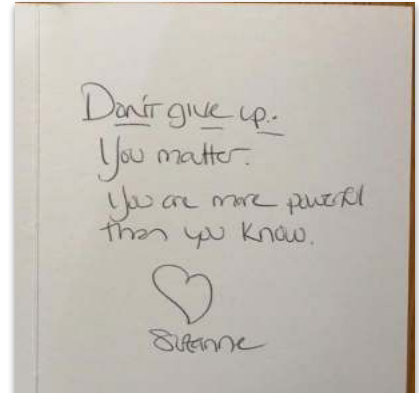 Don't give up.
You matter.
You are more powerful
than you know.
Suzanne